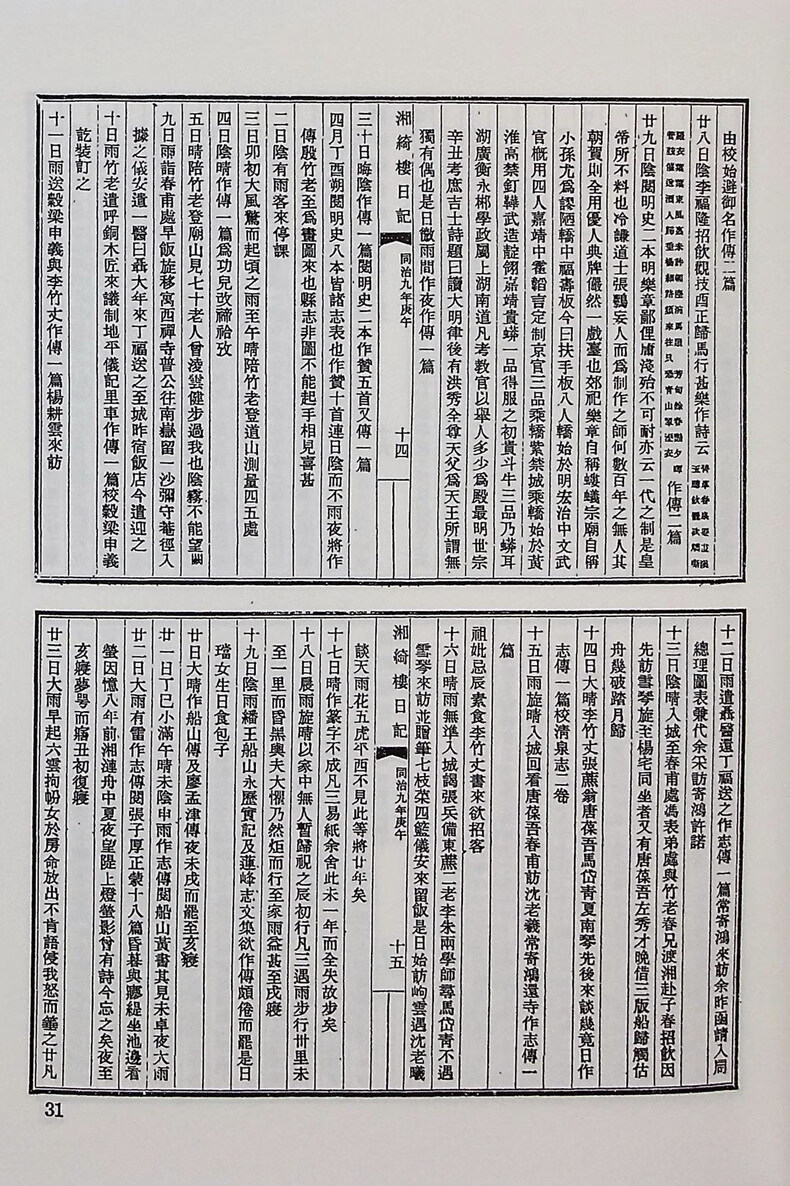 由校始避御名作傳二篇
廿八日陰李福隆招飲觀技酉正歸馬行甚樂作詩云
作傳二篇
廿九日陰閱明史二本明樂章鄙俚庸淺殆不可耐亦云一代之制是皇
帝所不料也冷謙道士張鶚妄人而爲制作之師何數百年之無人其
朝賀則全用優人典牌儼然一戲臺也郊祀樂章自稱螻蟻宗廟自稱
小孫尤爲謬陋轎中福壽板今曰扶手板八人轎始於明宏治中文武
官槪用四人嘉靖中霍韜言定制京官三品乘轎紫禁城乘轎始於黃
淮高禁釘鞾武造靛翎嘉靖貴蟒一品得服之初貴斗牛三品乃蟒耳
湖廣衡永郴學政屬上湖南道凡考教官以舉人多少爲殿最明世宗
辛丑考庶吉士詩題曰讀大明律後有洪秀全尊天父爲天王所謂無
獨有偶也是日微雨間作夜作傳一篇
湘綺樓日記
同治九年庚午
十四
三十日晦陰作傳一篇閱明史二本作贊五首又傳一篇
四月丁酉朔閱明史八本皆諸志表也作贊十首連日陰而不雨夜將作
傳殷竹老至爲畫圖來也縣志非圖不能起手相見喜甚
二日陰有雨客來停課
三日卯初大風驚而起頃之雨至午晴陪竹老登道山測量四五處
四日陰晴作傳一篇爲功兒改禘祫攷
五日晴陪竹老登廟山見七十老人曾淩雲健步過我也陰霧不能望關
九日雨詣春甫處早飯旋移寓西禪寺普公往南嶽留一沙彌守菴徑入
據之儀安遣一醫曰聶大年來丁福送之至城昨宿飯店今遣迎之
十日雨竹老遣呼銅木匠來議制地平儀記里車作傳一篇校穀梁申義
訖裝訂之
十一日雨送穀梁申義與李竹丈作傳一篇楊耕雲來訪
十二日雨遣聶醫還丁福送之作志傳一篇常寄鴻來訪余昨函請入局
總理圖表兼代余采訪寄鴻許諾
十三日陰晴入城至春甫處馮表弟處與竹老春兄渡湘赴子春招飲因
先訪雪琴旋至楊宅同坐者又有唐葆吾左秀才晚借三版船歸觸估
舟幾破踏月歸
十四日大晴李竹丈張蕉翁唐葆吾馬岱靑夏南琴先後來談幾竟日作
志傳一篇校淸泉志二卷
十五日雨旋晴入城回看唐葆吾春甫訪沈老羲常寄鴻還寺作志傳一
篇
祖妣忌辰素食李竹丈書來欲招客
十六日晴雨無準入城謁張兵備東蕉二老李朱兩學師尋馬岱靑不遇
雪琴來訪並贈筆七枝菜四籃儀安來留飯是日始訪岣雲遇沈老曦
湘綺樓日記
同治九年庚午
十五
談天雨花五虎平西不見此等將廿年矣
十七日晴作篆字不成凡三易紙余舍此未一年而全失故步矣
十八日晨雨旋晴以家中無人暫歸視之辰初行凡三遇雨步行卅里未
至一里而昏黑輿夫大懼乃然炬而行至家雨益甚至戌寢
十九日陰雨繙王船山永歷實記及蓮峰志文集欲作傳頗倦而罷是日
璫女生日食包子
廿日大晴作船山傳及廖孟津傳夜未戌而罷至亥寢
廿一日丁巳小滿午晴未陰申雨作志傳閱船山黃書其見未卓夜大雨
廿二日大雨有雷作志傳閱張子厚正蒙十八篇昏暮與廖緹坐池邊看
螢因憶八年前湘漣舟中夏夜望隄上燈螢影曾有詩今忘之矣夜至
亥寢夢咢而寤丑初復寢
廿三日大雨早起六雲拘帉女於房命放出不肯語侵我怒而箠之廿凡
31